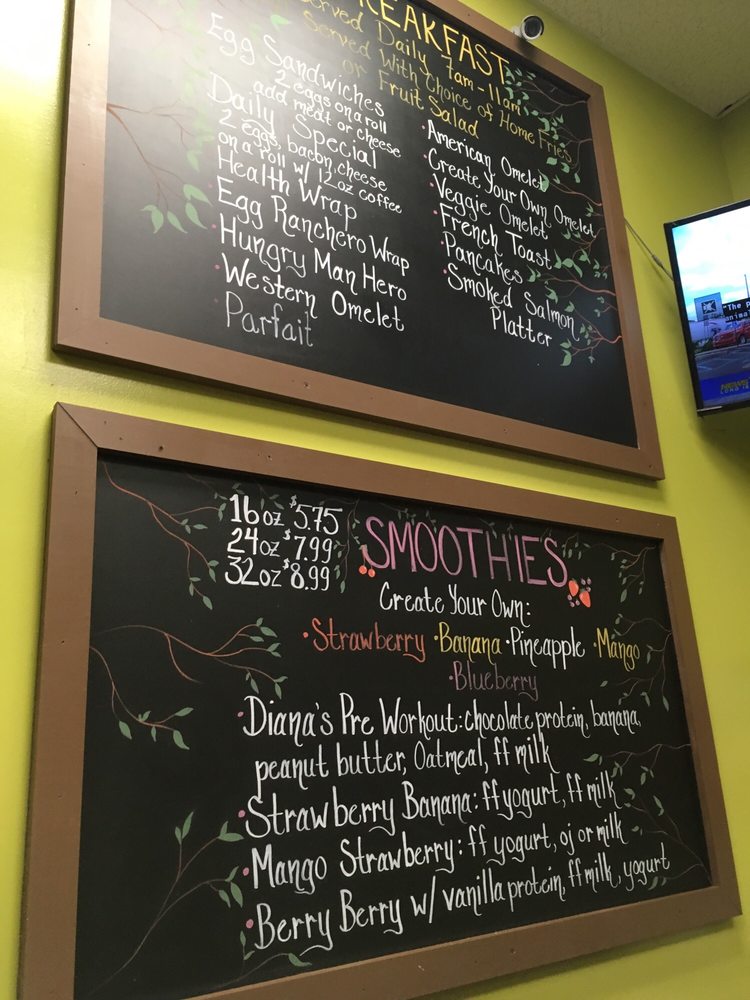 BREAKFAST
Served Daily 7am-11am
Served With Choice of Home Fries
or Fruit Salad
Egg Sandwiches
2 eggs on a roll
add meat or cheese
Daily Special
2 eggs, bacon, cheese
on a roll w/ 12oz coffee
Health Wrap
Egg Ranchero Wrap
Hungry Man Hero
Western Omelet
Parfait
American Omelet
Create Your Own Omelet
Veggie Omelet
French Toast
Pancakes
Smoked Salmon
Platter
"The p
16oz $5.75
24oz $7.99
32oz $8.99
SMOOTHIES
Create Your Own:
·Strawberry ·Banana ·Pineapple ·Mango
·Blueberry
·Diana's Pre Workout: chocolate protein, banana,
peanut butter, Oatmeal, ff milk
·Strawberry Banana: ff yogurt, ff milk
·Mango Strawberry: ff yogurt, oj or milk
·Berry Berry w/ vanilla protein, ff milk, yogurt